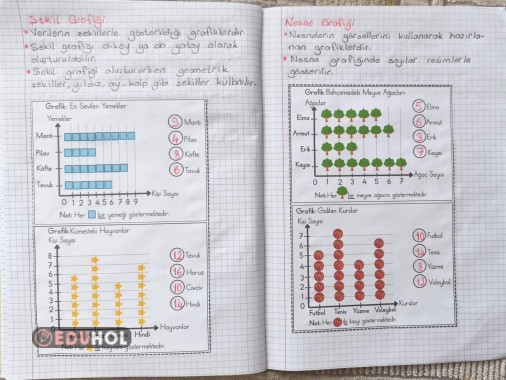 Şekil Grafiği
• Verilerin şekillerle gösterildiği grafiklerdir.
• Şekil grafiği dikey ya da yatay olarak
oluşturulabilir.
• Şekil grafiği oluştururken geometrik
şekiller, yıldız, ay, kalp gibi şekiller kullanılır.
Grafik: En Sevilen Yemekler
Yemekler
Mantı
Pilav
Köfte
Tavuk
0 1 2 3 4 5 6 7 8 9
Kişi Sayısı
9 Mantı
4 Pilav
8 Köfte
6 Tavuk
Not: Her bir yemeği göstermektedir.
Grafik: Kümesteki Hayvanlar
Kişi Sayısı
8
7
6
5
4
3
2
1
Hindi
Hayvanlar
12 Tavuk
16 Horoz
10 Civciv
14 Hindi
EDUHOL
göstermektedir.
Nesne Grafiği
• Nesnelerin görsellerini kullanarak hazırla-
nan grafiklerdir.
• Nesne grafiğinde sayılar resimlerle
gösterilir.
Grafik: Bahçemizdeki Meyve Ağaçları
Ağaçlar
Elma
Armut
Erik
Kayısı
0 1 2 3 4 5 6 7
Ağaç Sayısı
5 Elma
6 Armut
3 Erik
7 Kayısı
Not: Her bir meyve ağacını göstermektedir.
Grafik: Gidilen Kurslar
Kişi Sayısı
7
6
5
4
3
2
1
0
Futbol Tenis Yüzme Voleybol
Kurslar
10 Futbol
14 Tenis
8 Yüzme
Voleybol
Not: Her kişiyi göstermektedir.